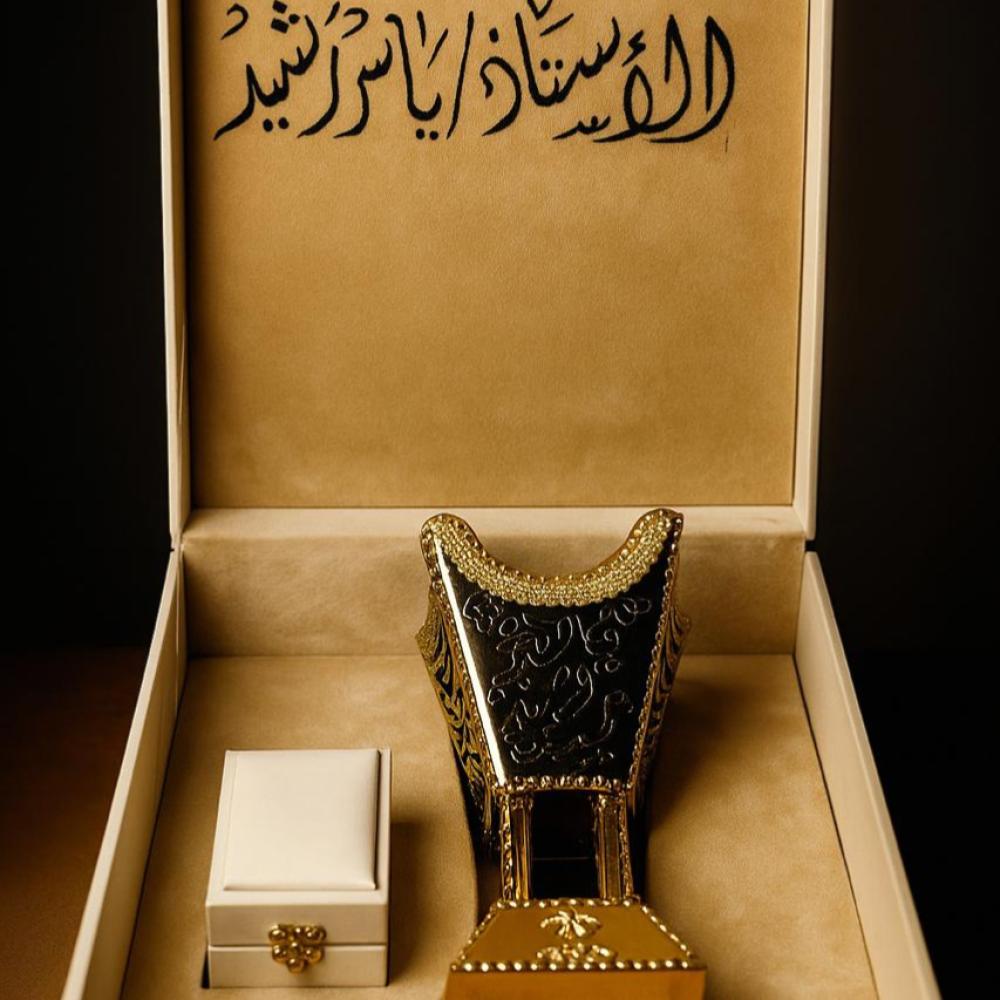 الأستاذ / ياسر رشيد